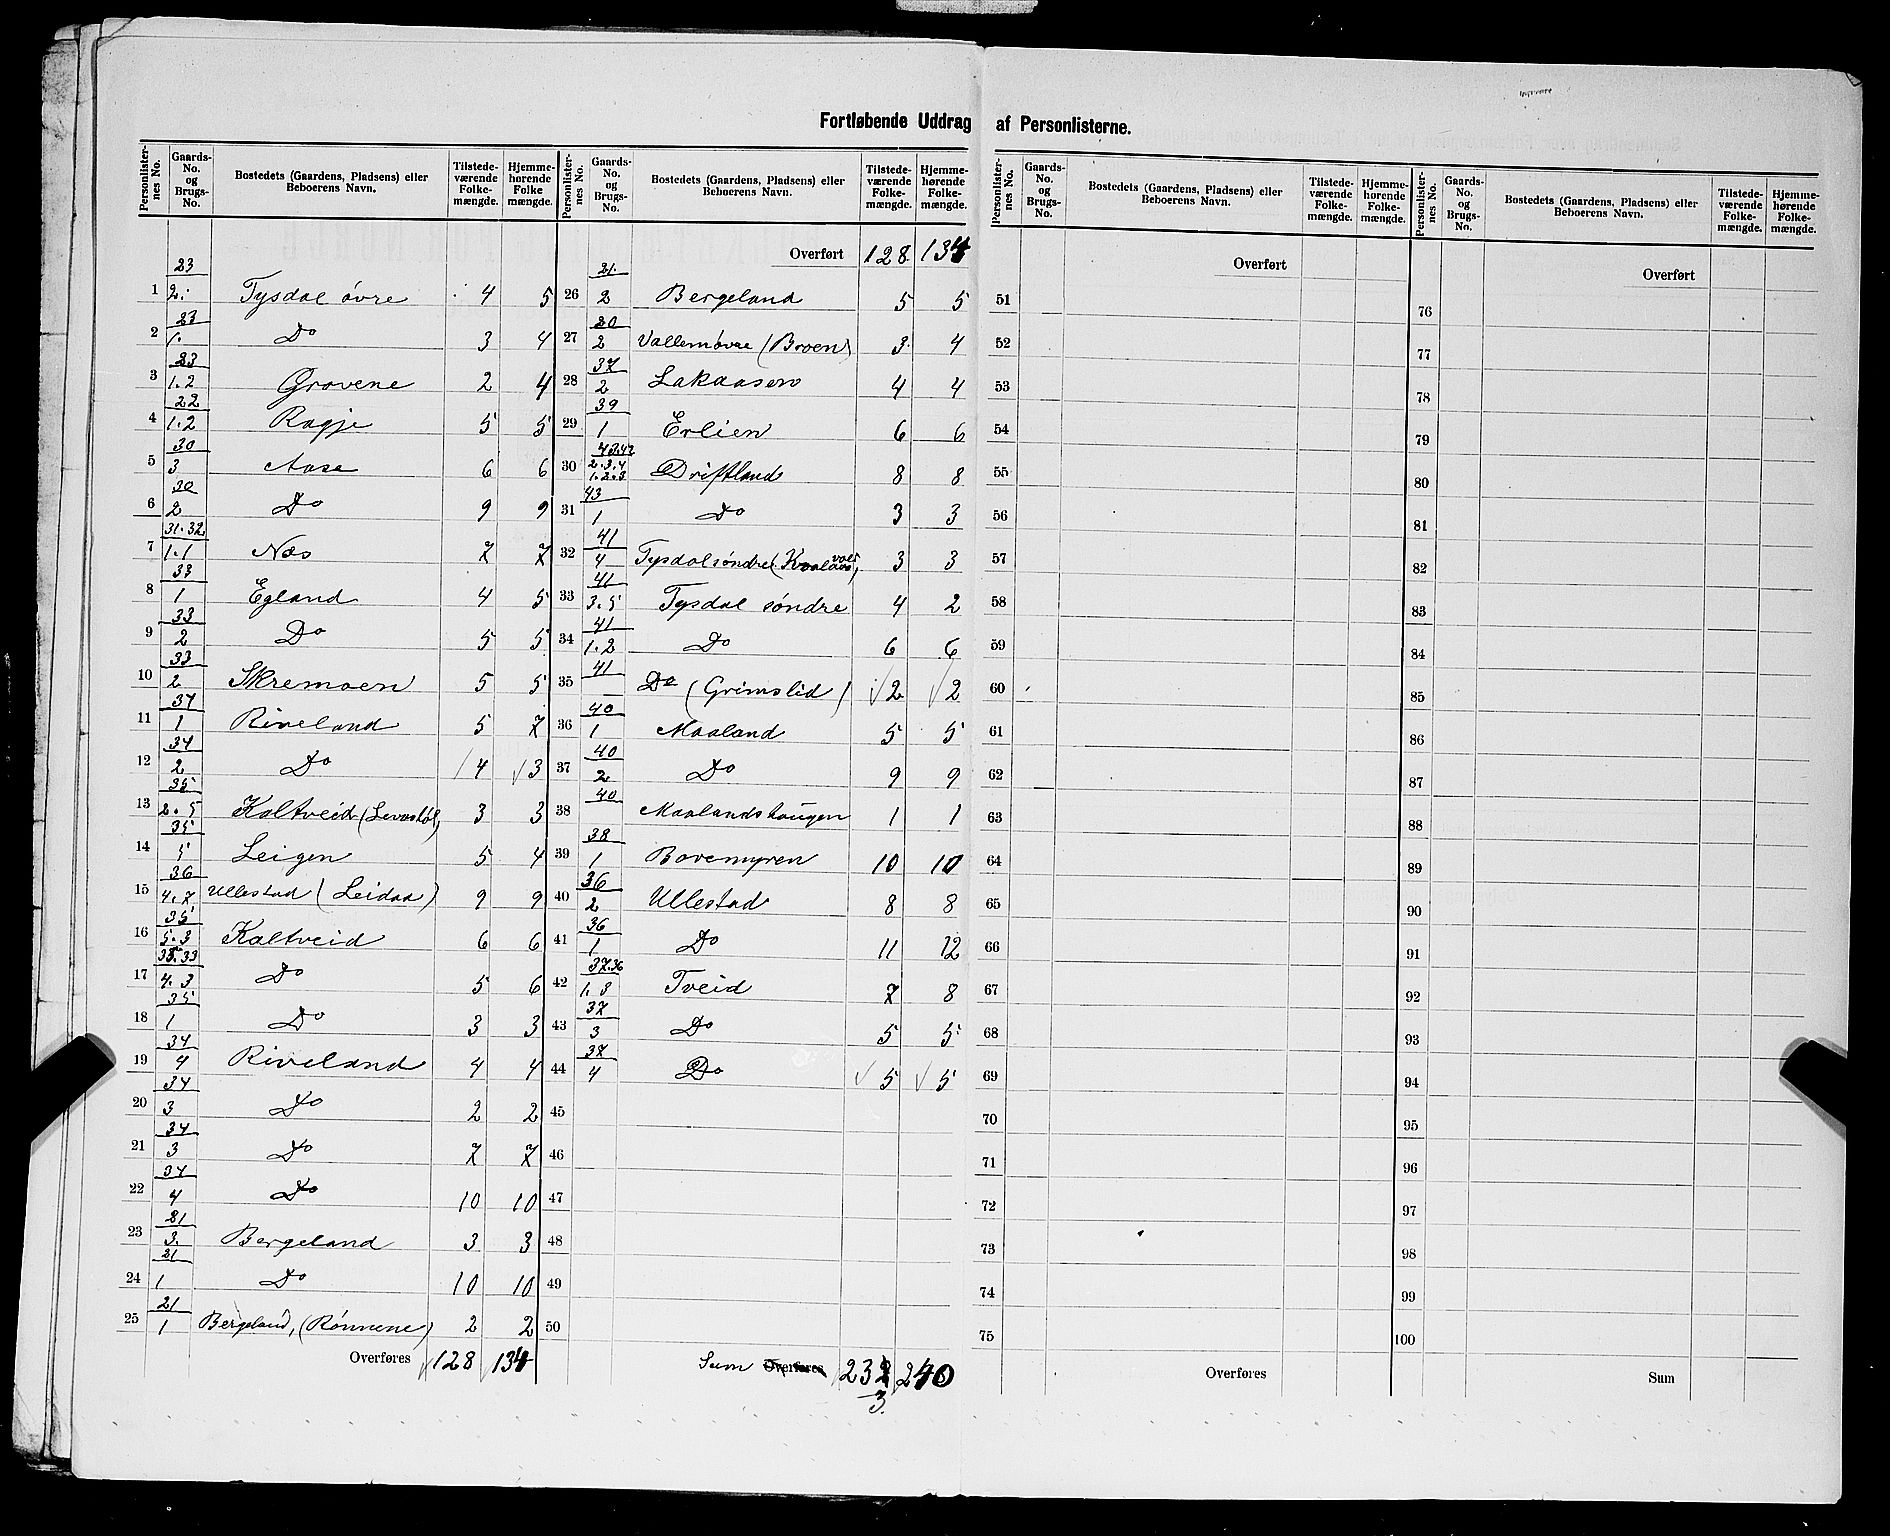 Fortløbende Uddrag af Personlisterne.
Personlisternes No. | Gaards-No. og Brugs-No. | Bostedets (Gaardens, Pladsens) eller Beboerens Navn. | Tilstedeværende Folkemængde. | Hjemmehørende Folkemængde.
1 | 23 / 2. | Tysdal øvre | 4 | 5
2 | 23 / 1. | Do | 3 | 4
3 | 23 / 1.2 | Grovene | 2 | 4
4 | 22 / 1.2 | Ragje | 5 | 5
5 | 30 / 3 | Aase | 6 | 6
6 | 30 / 2 | Do | 9 | 9
7 | 31.32 / 1.1 | Næs | 7 | 7
8 | 33 / 1 | Egland | 4 | 5
9 | 33 / 2 | Do | 5 | 5
10 | 33 / 2 | Skremoen | 5 | 5
11 | 34 / 1 | Riveland | 5 | 7
12 | 34 / 2 | Do | 4 | 3
13 | 35 / 2.5 | Kaltveit (Levastøl) | 3 | 3
14 | 35 / 5 | Leigen | 5 | 4
15 | 36 / 4.7 | Ullestad (Leidaa) | 9 | 9
16 | 35 / 5.3 | Kaltveid | 6 | 6
17 | 35.33 / 4.3 | Do | 5 | 6
18 | 35 / 1 | Do | 3 | 3
19 | 34 / 4 | Riveland | 4 | 4
20 | 34 / 3 | Do | 2 | 2
21 | 34 / 3 | Do | 7 | 7
22 | 34 / 4 | Do | 10 | 10
23 | 21 / 3. | Bergeland | 3 | 3
24 | 21 / 1 | Do | 10 | 10
25 | 21 / 1 | Bergeland, (Rönnene) | 2 | 2
Overføres 128 134
Personlisternes No. | Gaards-No. og Brugs-No. | Bostedets (Gaardens, Pladsens) eller Beboerens Navn. | Tilstedeværende Folkemængde. | Hjemmehørende Folkemængde.
Overført 128 134
26 | 21. / 2 | Bergeland | 5 | 5
27 | 20 / 2 | Vallemøvre (Broen) | 3 | 4
28 | 37 / 2 | Lakaasen | 4 | 4
29 | 39 / 1 | Erlien | 6 | 6
30 | 43.42 / 2.3.4 1.2.3 | Driftland | 8 | 8
31 | 43 / 1 | Do | 3 | 3
32 | 41 / 4 | Tysdal søndre | 3 | 3
33 | 41 / 3.5 | Tysdal søndre | 4 | 2
34 | 41 / 1.2 | Do | 6 | 6
35 | 41 / — | Do (Grimslid) | 2 | 2
36 | 40 / 1 | Maaland | 5 | 5
37 | 40 / 2 | Do | 9 | 9
38 | 40 | Maalandshaugen | 1 | 1
39 | 38 / 1 | Bovemyren | 10 | 10
40 | 36 / 2 | Ullestad | 8 | 8
41 | 36 / 1 | Do | 11 | 12
42 | 37.36 / 1.8 | Tveid | 7 | 8
43 | 37 / 3 | Do | 5 | 5
44 | 37 / 4 | Do | 5 | 5
45
46
47
48
49
50
Sum Overføres 232 240
3.
Personlisternes No. | Gaards-No. og Brugs-No. | Bostedets (Gaardens, Pladsens) eller Beboerens Navn. | Tilstedeværende Folkemængde. | Hjemmehørende Folkemængde.
Overført
51
52
53
54
55
56
57
58
59
60
61
62
63
64
65
66
67
68
69
70
71
72
73
74
75
Overføres
Personlisternes No. | Gaards-No. og Brugs-No. | Bostedets (Gaardens, Pladsens) eller Beboerens Navn. | Tilstedeværende Folkemængde. | Hjemmehørende Folkemængde.
Overført
76
77
78
79
80
81
82
83
84
85
86
87
88
89
90
91
92
93
94
95
96
97
98
99
100
Sum